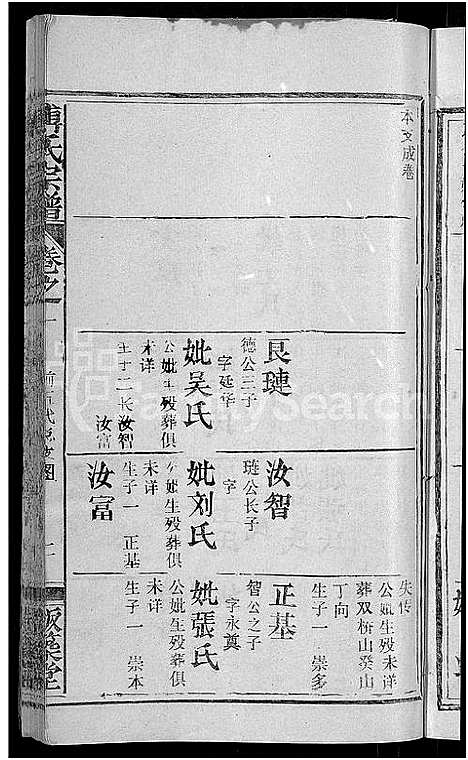 本文成卷
良璉
德公三子
字延华
妣吴氏
公妣生殁葬俱
未详
生子二长汝智
汝富
汝智
琏公长子
字
妣刘氏
公妣生殁葬俱
未详
生子一 正基
汝富
失传
公妣生殁未详
葬双桥山癸山
丁向
生子一 崇多
正基
智公之子
字永奠
妣張氏
公妣生殁葬俱
未详
生子一 崇本
傅氏宗譜
卷之一
版築堂
FamilySearch